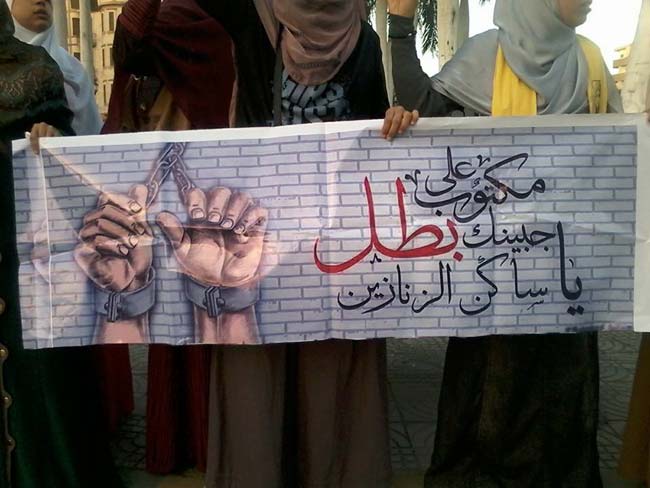 مكتوب على
جبينك بطل
يا ساكن الزنازين